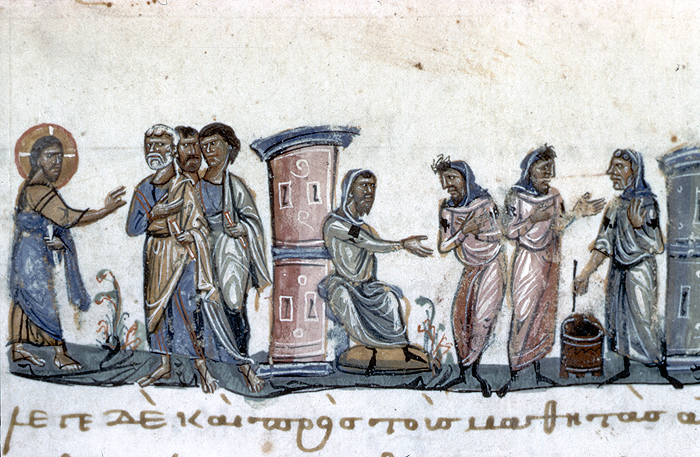 λεγε δὲ καὶ πρὸς τοὺς μαθητὰς α